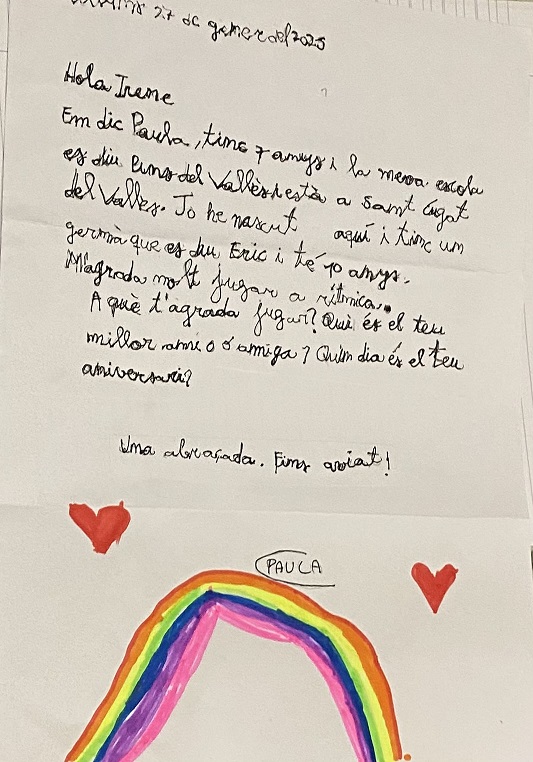 27 de gener del 2025
Hola Irene
Em dic Paula, tinc 7 anys i la meva escola
es diu Pins del Vallès i està a Sant Cugat
del Valles. Jo he nascut aquí i tinc un
germà que es diu Eric i té 10 anys.
M'agrada molt jugar a rítmica.
A què t'agrada jugar? Qui és el teu
millor amic o o amiga? Quin dia és el teu
aniversari?
Una abraçada. Fins aviat!
PAULA